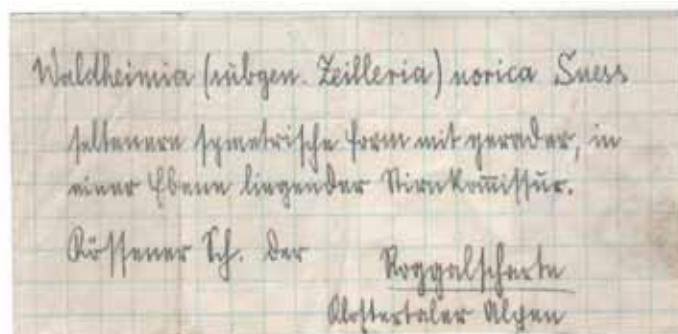 Waldheimia (subgen. Zeilleria) norica Suess
seltenere symetrische Form mit gerader, in
einer Ebene liegender Stirnkom̅issur.
Kössener Sch. der Roggalscharte
Klostertaler Alpen